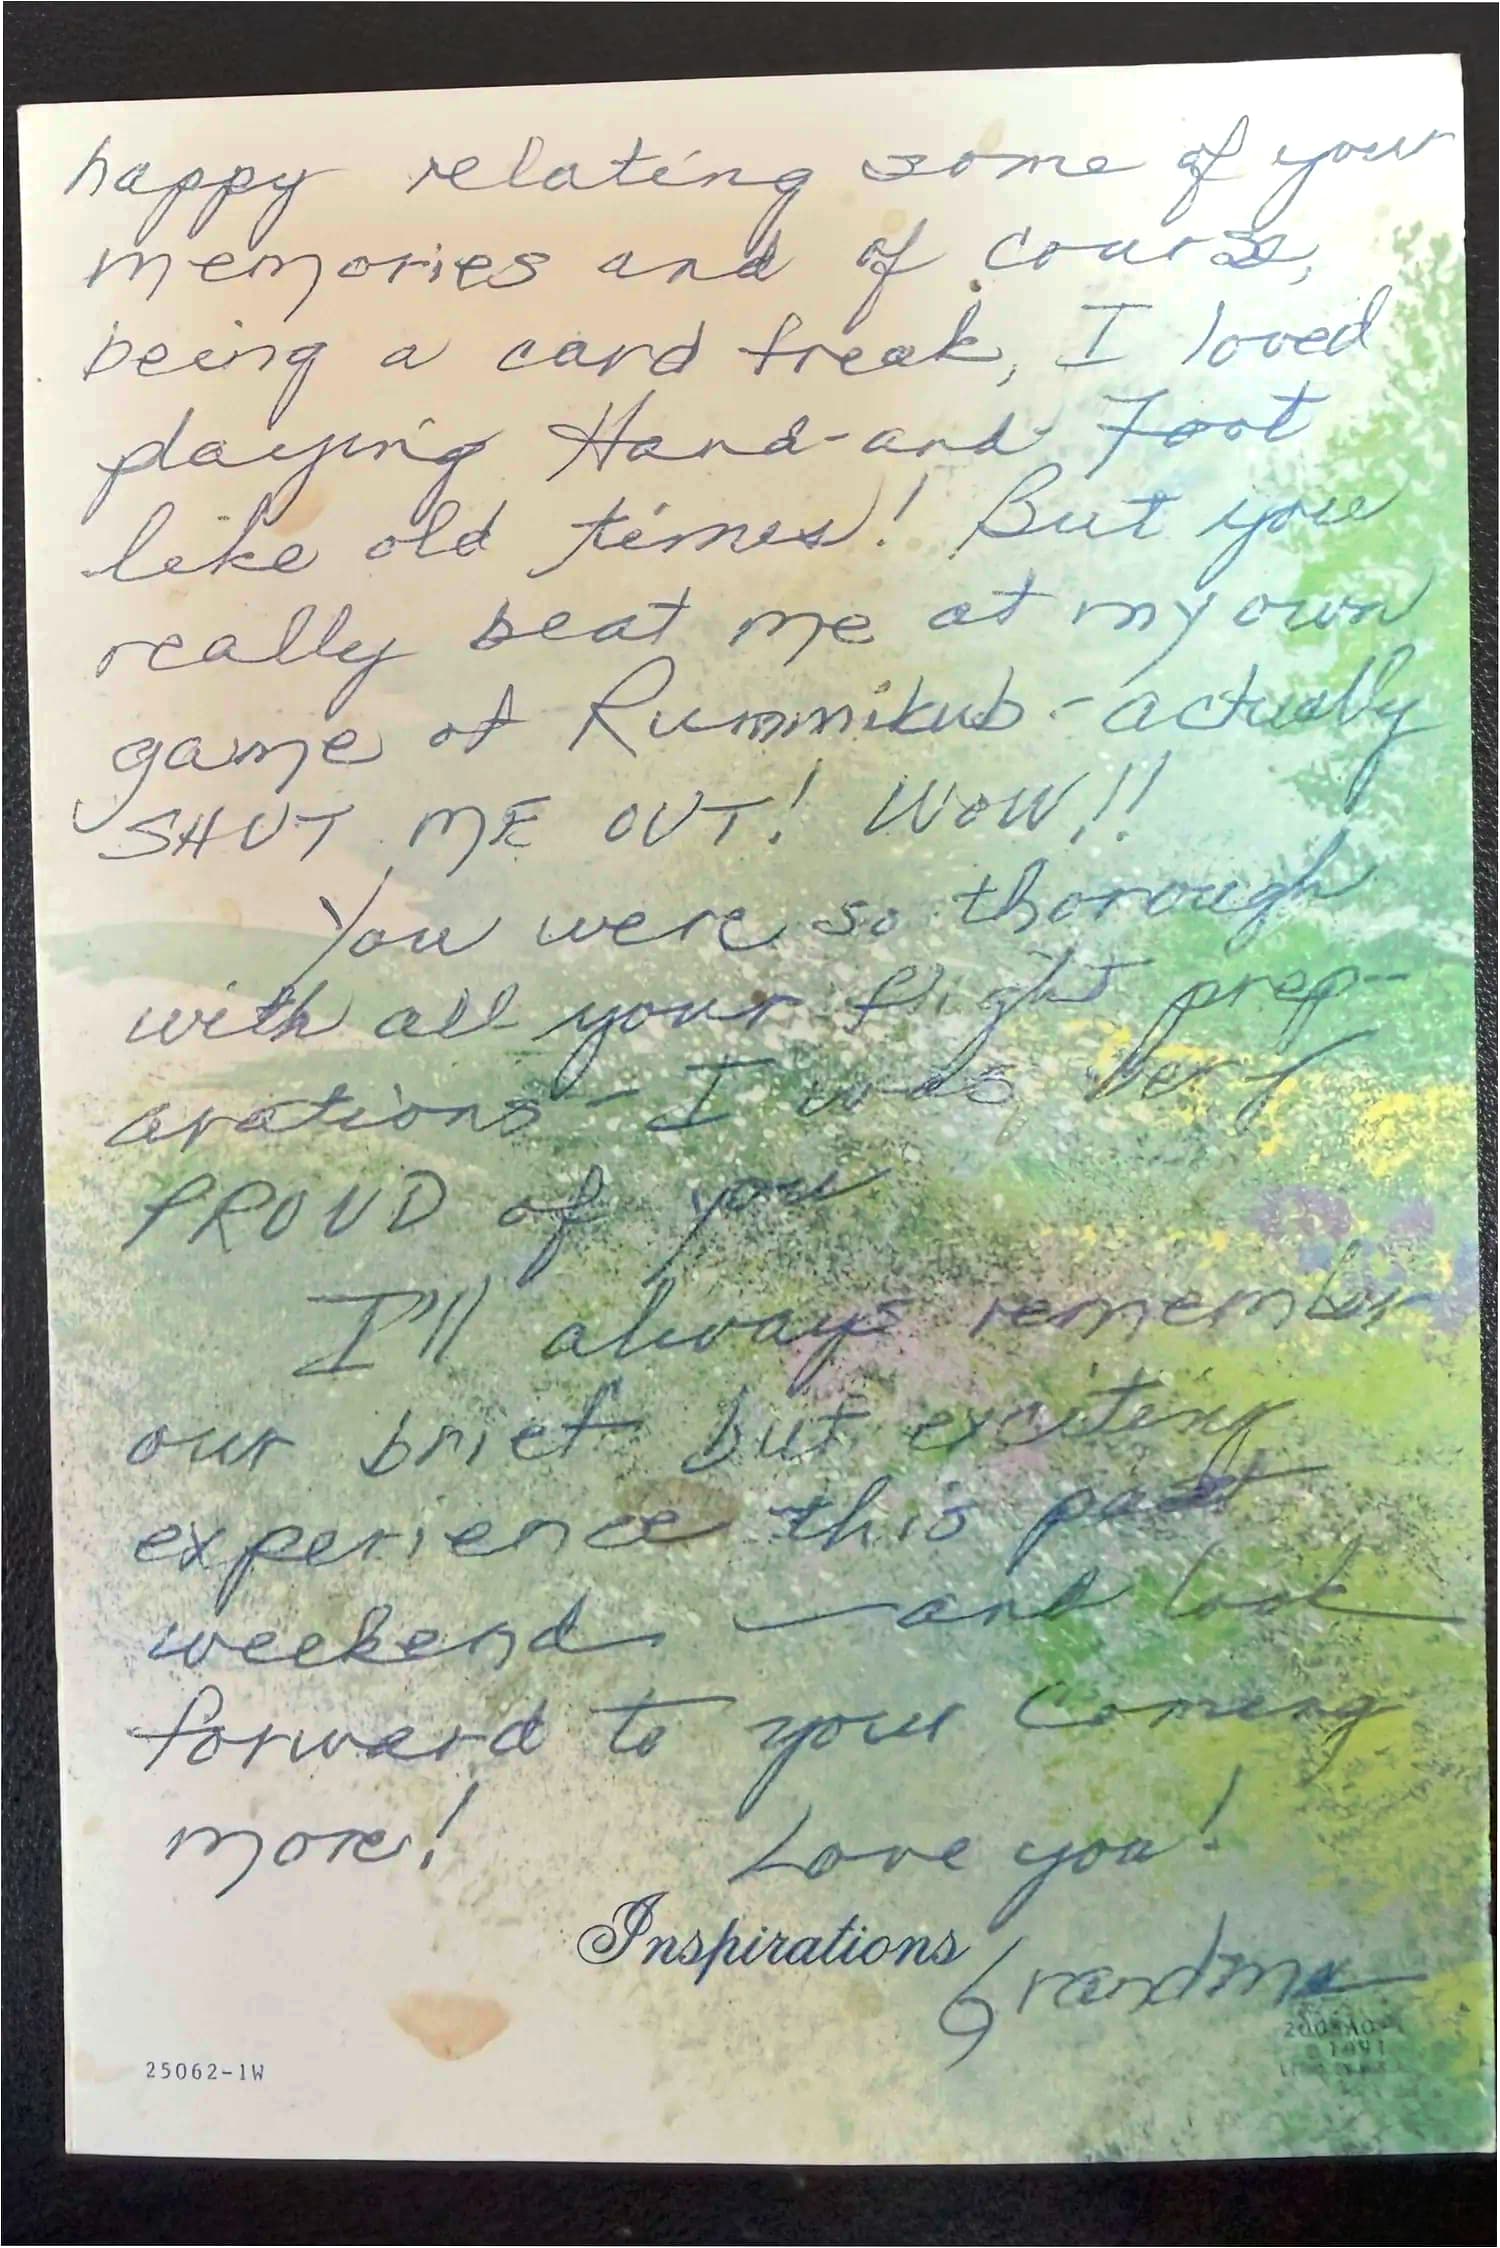 happy relating some of your
memories and of course,
being a card freak, I loved
playing Hand-and-Foot
like old times! But you
really beat me at my own
game of Rummikub - actually
SHUT ME OUT! WOW!!
You were so thorough
with all your flight prep-
arations - I was very
PROUD of you
I'll always remember
our brief but exciting
experience this past
weekend - and look
forward to your coming
more! Love you!
Inspirations
Grandma
25062-1W